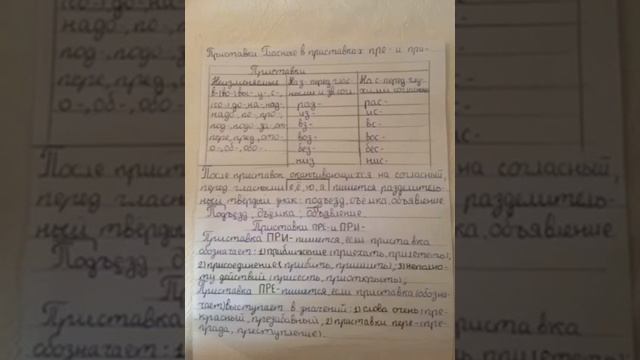 Приставки Гласные в приставках пре- и при-
Приставки
Неизменяемые На з- перед глас- На с- перед глу-
ными и зв. согл. хими согласными
в-(во-) вы-, у-, с-,
(со-), до-, на-, над-,
надо-, по-, про-,
под-, подо-, за-, от-
пере-, пред-, ото-
о-, об-, обо-
раз- рас-
из- ис-
вз- вс-
воз- вос-
без- бес-
низ нис-
После приставок оканчивающихся на согласный,
перед гласными (е, ё, ю, я) пишется разделитель-
ный твердый знак: подъезд, объемка, объявление
Подъезд, объемка, объявление.
Приставки ПРЕ- и ПРИ-
Приставка ПРИ- пишется, если приставка
обозначает: 1) приближение (приехать, прилететь);
2) присоединение (прибить, пришить); 3) неполно-
ту действий (присесть, приоткрыть);
Приставка ПРЕ- пишется, если приставка (обозна-
чает) выступает в значении: 1) слова очень (пре-
красный, презабавный), 2) приставки пере- (пре-
града, преступление).